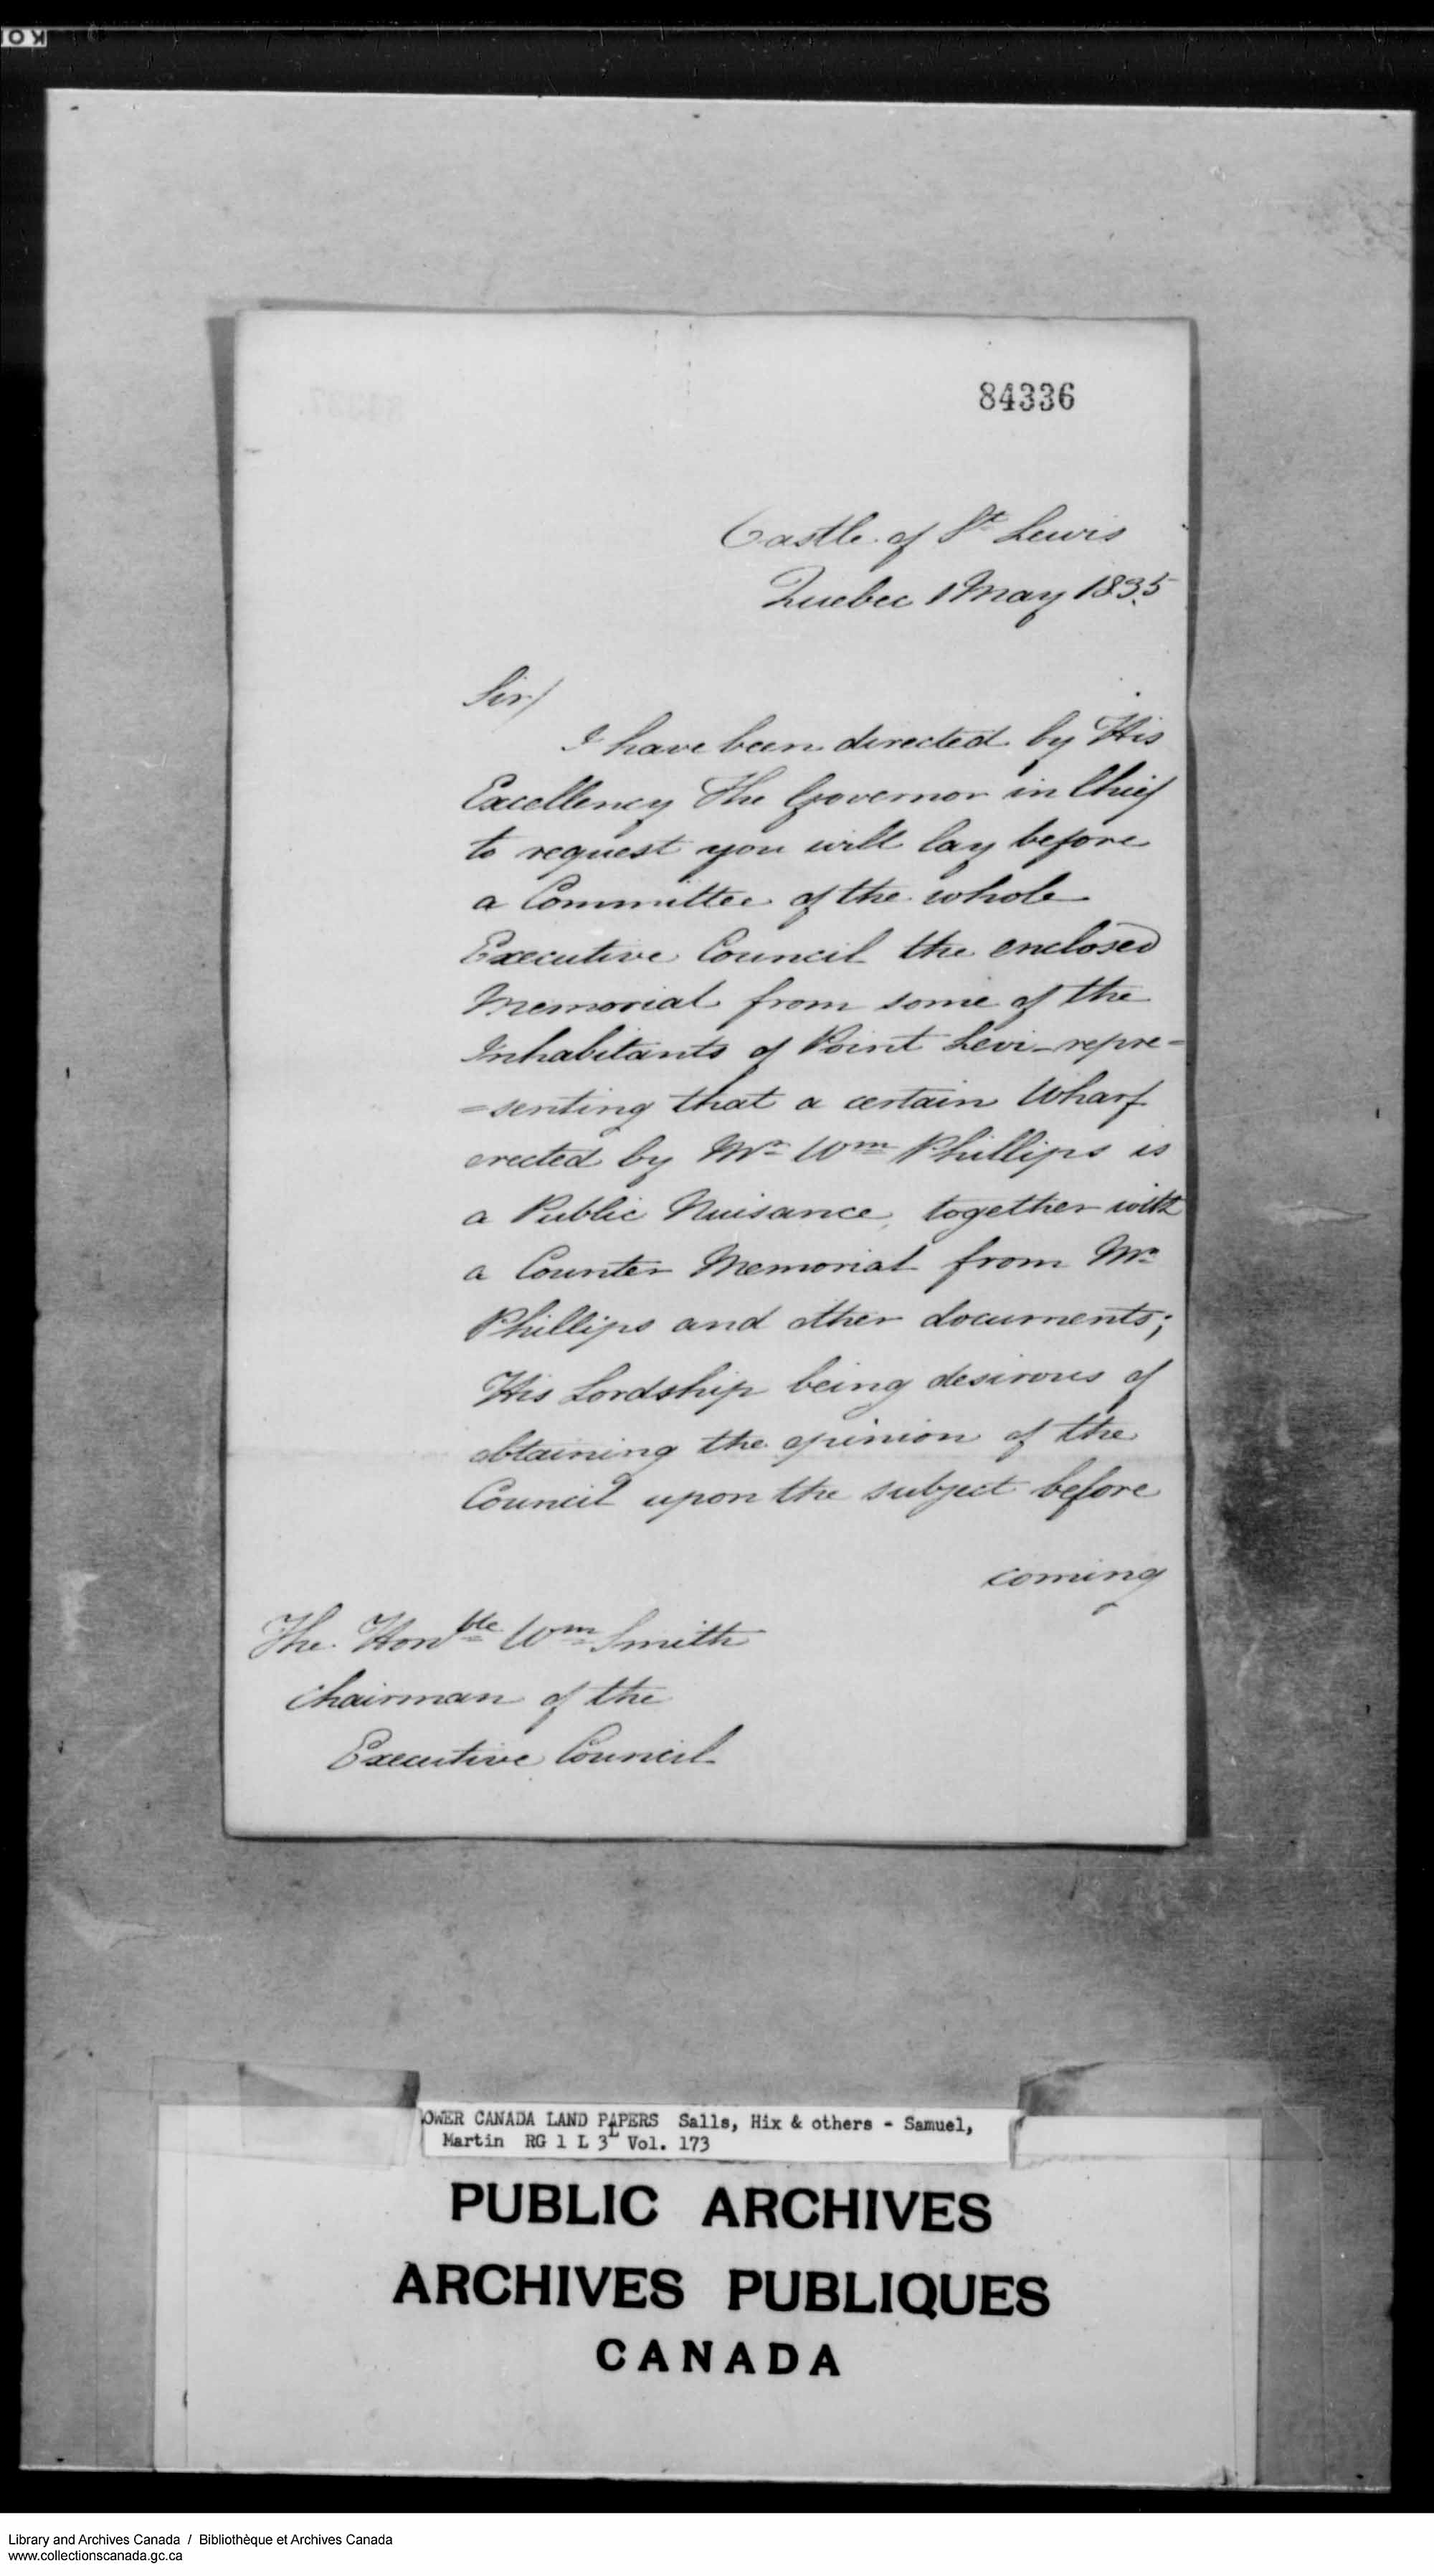 84336
Castle of St Lewis
Quebec 1 May 1835
Sir/
I have been directed by His
Excellency The Governor in Chief
to request you will lay before
a Committee of the whole
Executive Council the enclosed
Memorial from some of the
Inhabitants of Point Levi - repre=
=senting that a certain Wharf
erected by Mr Wm Phillips is
a Public Nuisance, together with
a Counter Memorial from Mr
Phillips and other documents;
His Lordship being desirous of
obtaining the opinion of the
Council upon the subject before
coming
The Honble Wm Smith
Chairman of the
Executive Council
OWER CANADA LAND PAPERS Salls, Hix & others - Samuel,
Martin RG 1 L 3L Vol. 173
PUBLIC ARCHIVES
ARCHIVES PUBLIQUES
CANADA
Library and Archives Canada / Bibliothèque et Archives Canada
www.collectionscanada.gc.ca